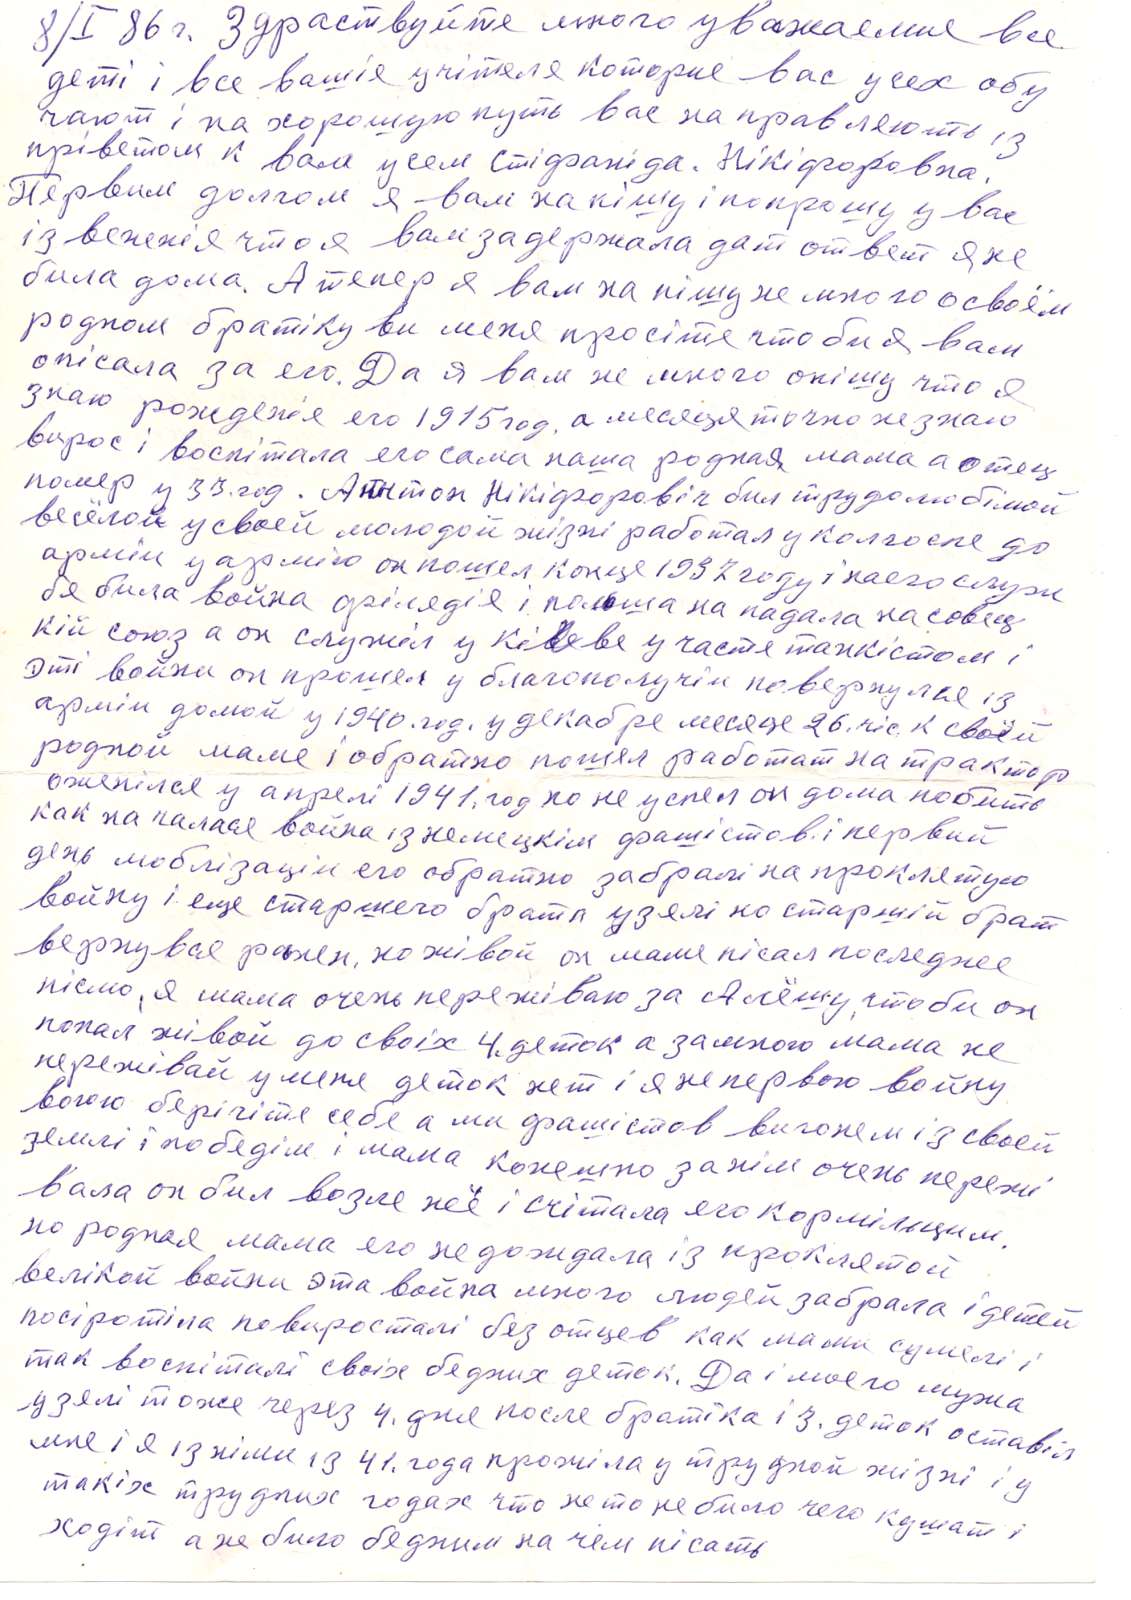 8/I 86 г. Здраствуйте много уважаемие все
деті і все вашіе учітеля которие вас усех обу
чают і на хорошую путь вас на правляють із
пріветом к вам усем Стіфаніда. Нікіфоровна.
Первим долгом я вам на пішу і попрошу у вас
ізвенения что я вам задержала дат ответ я не
била дома. А тепер я вам на пішу не много о своём
родном братіку ви меня просіте что би я вам
опісала за его. Да я вам не много опішу что я
знаю рожденія его 1915 год, а месяця точно не знаю
вирос і воспітала его сама наша родная мама а отец
помер у 33. год. Антон Нікіфоровіч бил трудолюбімой
весёлой у своей молодой жізні работал у колгоспе до
армін у армію он пошел конце 1937 году і на его служ
бя била война філядія і польша на падала на совец
кій союз а он служіл у Кіеве у часте танкістом і
эті войни он прошел у благополучін повернулся із
армін домой у 1940. год. у декабре месяце 26. чіс. к своей
родной маме і обратно пошел работат на трактор
оженілся у апрелі 1941. год но не успел он дома побить
как на палася война із немецкім фашістов. і первий
день моблізацін его обратно забралі на проклятую
войну і еще старшего брата узялі но старшій брат
вернувся ранен, но жівой он маме пісал последнее
пісмо, я мама очень переживаю за Алёшу, что би он
попал живой до своіх 4. деток а за мною мама не
пережівай у меня деток нет і я не первою войну
воюю берігіте себе а ми фашістов вигонем із своей
землі і победім і мама конешно за нім очень пережі
вала он бил возле неё і счітала его кормільцим.
но родная мама его не дождала із проклятой
велікой войни эта война много людей забрала і детей
посіротіла повирасталі без отцев как мами сумелі і
так воспіталі своіх бедних деток. Да і моего мужа
узялі тоже через 4. дня после братіка і 3. деток оставіл
мне і я із німи із 41. года прожіла у трудной жізні і у
такіх трудних годах что не то не било чего кушат і
ходіт а не било бедним на чем пісать